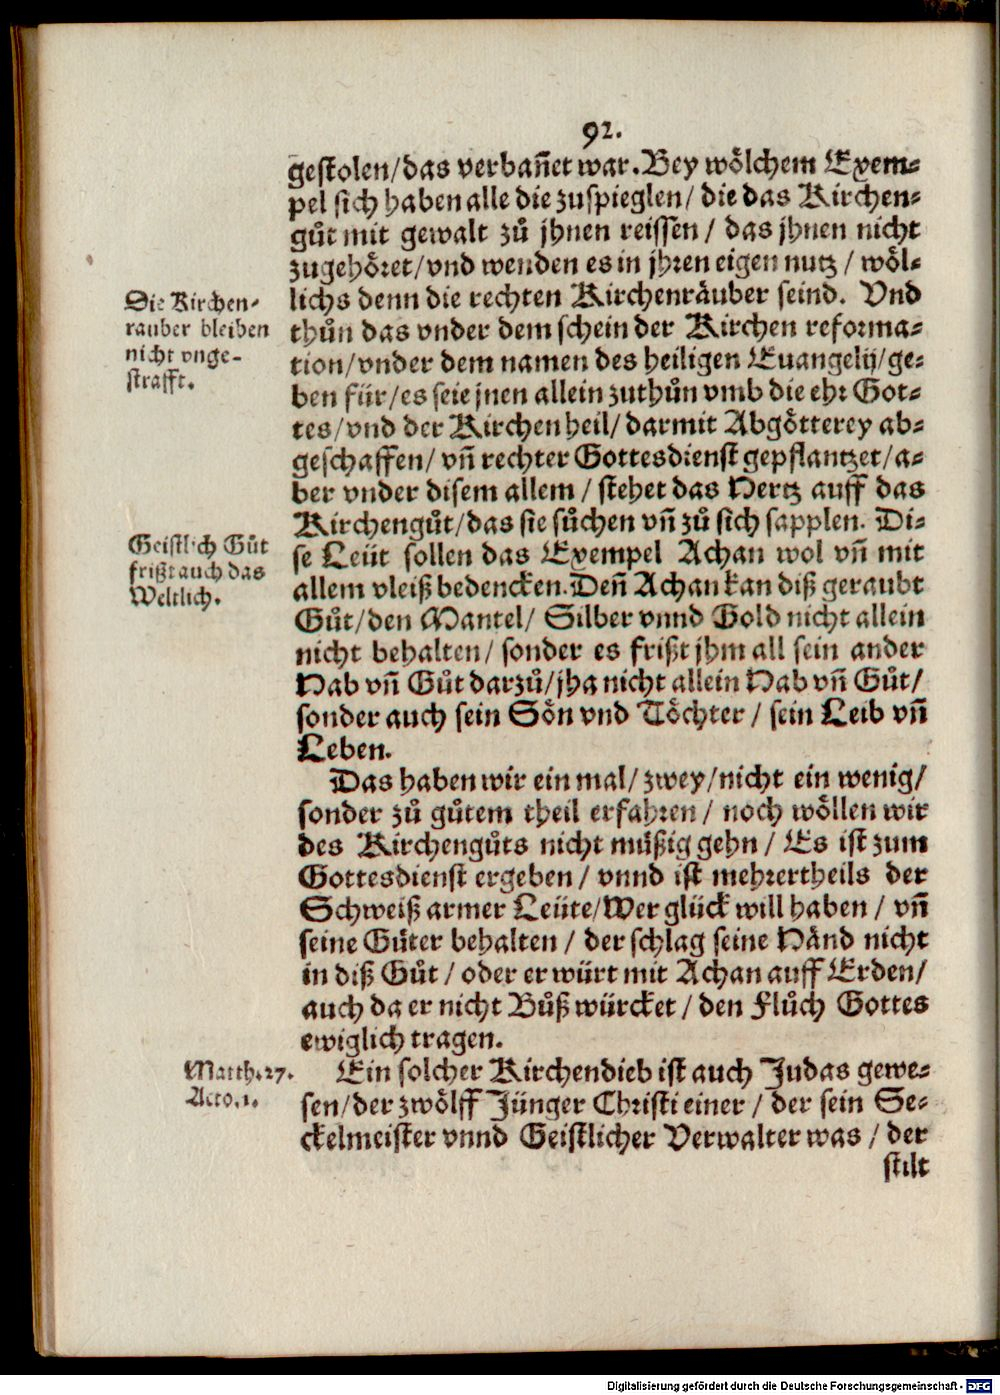 92.
gestolen/das verbañet war. Bey wölchem Exem-
pel sich haben alle die zuspieglen/ die das Kirchen-
gůt mit gewalt zů jhnen reissen / das jhnen nicht
zugehöret/vnd wenden es in jhren eigen nutz / wöl-
lichs denn die rechten Kirchenräuber seind. Vnd
thůn das vnder dem schein der Kirchen reforma-
tion/vnder dem namen des heiligen Euangelij/ge-
ben für/es seie jnen allein zuthůn vmb die ehr Got-
tes/vnd der Kirchen heil/ darmit Abgötterey ab-
geschaffen/ vñ rechter Gottesdienst gepflantzet/a-
ber vnder disem allem / stehet das Hertz auff das
Kirchengůt/das sie sůchen vñ zů sich sapplen. Di-
se Leüt sollen das Exempel Achan wol vñ mit
allem vleiß bedencken. Deñ Achan kan diß geraubt
Gůt/den Mantel/ Silber vnnd Gold nicht allein
nicht behalten/ sonder es frißt jhm all sein ander
Hab vñ Gůt darzů/jha nicht allein Hab vñ Gůt/
sonder auch sein Sön vnd Töchter / sein Leib vñ
Leben.
Das haben wir ein mal/ zwey/nicht ein wenig/
sonder zů gůtem theil erfahren / noch wöllen wir
des Kirchengůts nicht müßig gehn / Es ist zum
Gottesdienst ergeben / vnnd ist mehrertheils der
Schweiß armer Leüte/Wer glück will haben / vñ
seine Güter behalten / der schlag seine Händ nicht
in diß Gůt / oder er würt mit Achan auff Erden/
auch da er nicht Bůß würcket / den Flůch Gottes
ewiglich tragen.
Ein solcher Kirchendieb ist auch Judas gewe-
sen/der zwölff Jünger Christi einer / der sein Se-
ckelmeister vnnd Geistlicher Verwalter was / der
stilt
Die Kirchen-
rauber bleiben
nicht vnge-
strafft.
Geistlich Gůt
frißt auch das
Weltlich.
Matth.27.
Acto.1.
Digitalisierung gefördert durch die Deutsche Forschungsgemeinschaft - DFG